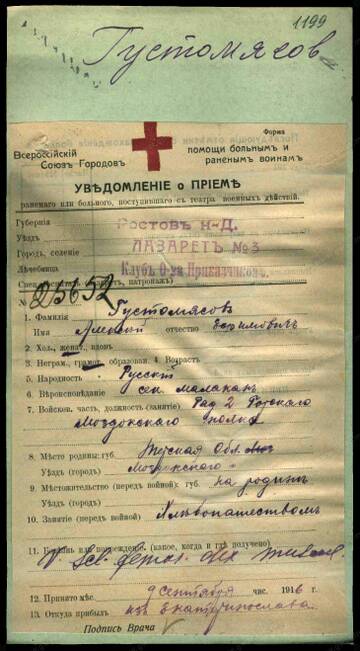 1199
Густомясов
Форма
Всероссійскій
Союзъ Городовъ
помощи больнымъ и
раненымъ воинамъ
УВѢДОМЛЕНІЕ о ПРІЕМѢ
раненаго или больного, поступившаго съ театра военныхъ дѣйствій.
Губернія
Ростовъ н-Д.
Уѣздъ
Городъ, селеніе
ЛАЗАРЕТЪ №3
Лечебница
Клубъ О-ва Приказчиковъ.
№ 25652
1. Фамилія Густомясовъ
Имя отчество Ефимовичъ
2. Хол., женат., вдовъ
3. Неграм., грамот., образован. 4. Возрастъ
5. Народность Русскій
6. Вѣроисповѣданіе сек. малаканъ
7. Войсков. часть, должность (занятіе) Ряд 2 Горскаго
Моздокскаго полка
8. Мѣсто родины: губ. Терская Обл.
Уѣздъ (городъ) Моздокскаго
9. Мѣстожительство (передъ войной): губ. на родинѣ
Уѣздъ (городъ)
10. Занятіе (передъ войной) Хлѣбопашествомъ
11. Болѣзнь или поврежденіе (какое, когда и гдѣ получено)
12. Принято мѣс. 9 сентября чис. 1916
13. Откуда прибылъ изъ Екатеринослава
Подпись Врача